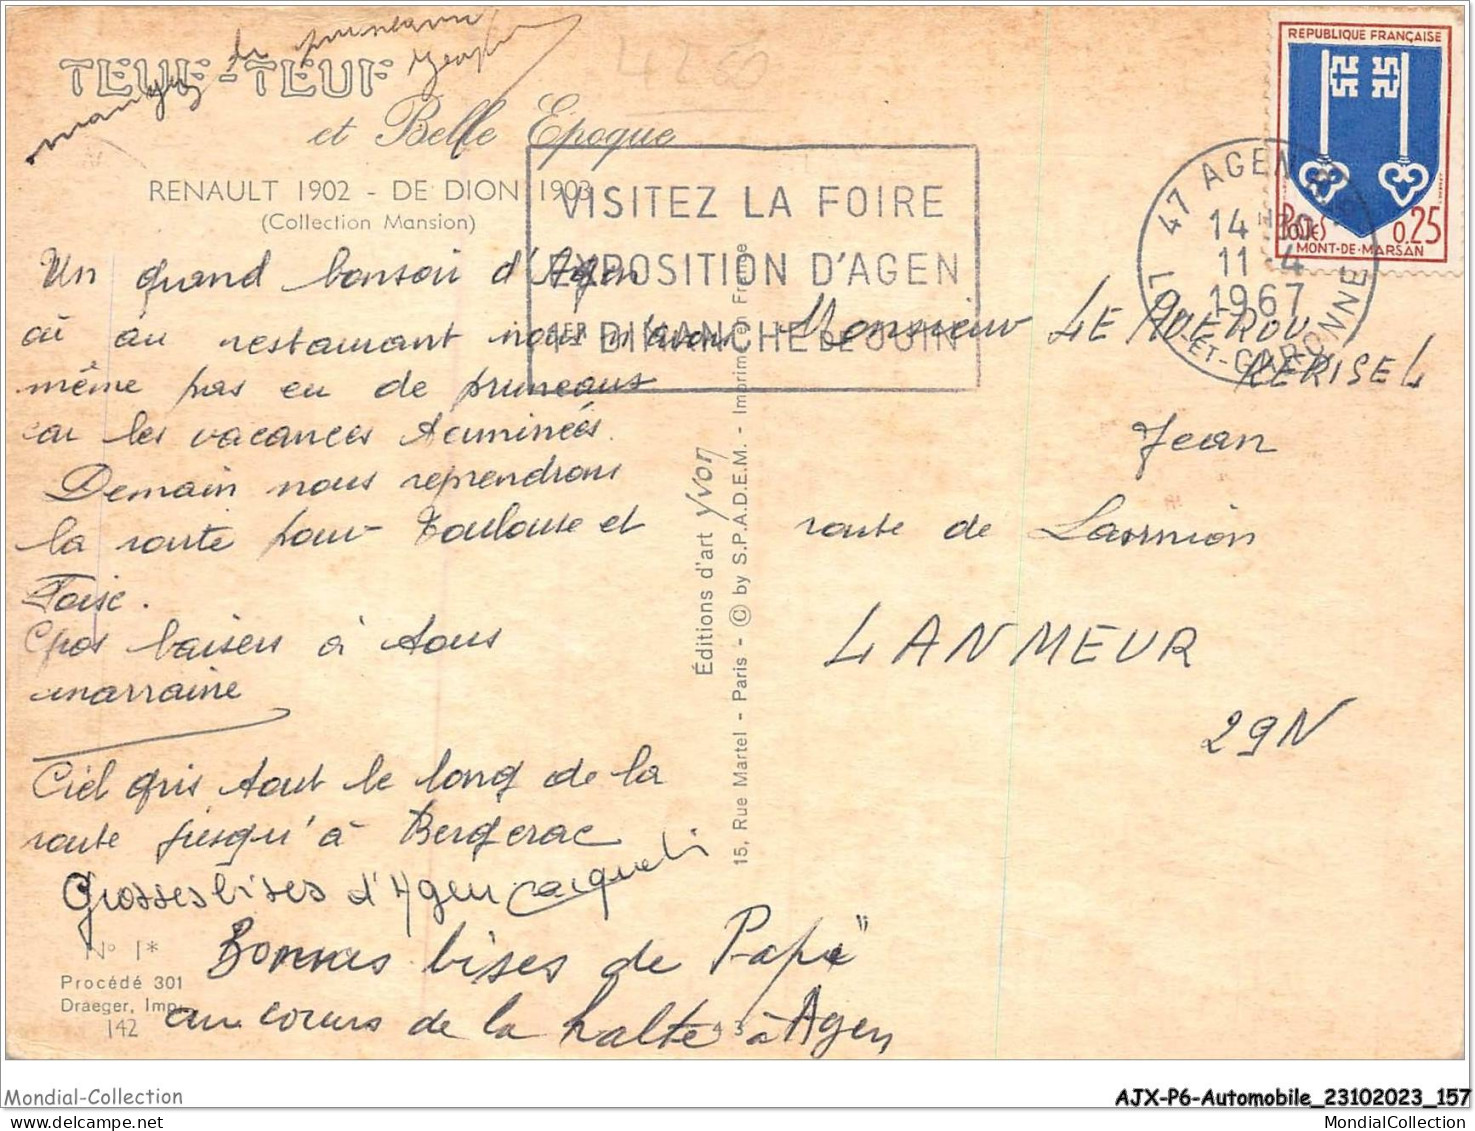 mangez du pruneau
TEUF-TEUF
et Belle Epoque
RENAULT 1902 - DE DION 1903
(Collection Mansion)
Un grand bonsoir d'Agen
où au restaurant nous n'avons
même pas eu de pruneaux
car les vacances terminées.
Demain nous reprendrons
la route pour Toulouse et
Foix.
Gros baisers à tous
marraine
Ciel gris tout le long de la
route jusqu'à Bergerac
Grosses bises d'Agen
Bonnes bises de "Papi"
au cours de la halte à Agen
N° 1*
Procédé 301
Draeger, Imp.
142
4 3
Éditions d'art Yvon
15, Rue Martel - Paris - © by S.P.A.D.E.M. - Imprimé en France
VISITEZ LA FOIRE
EXPOSITION D'AGEN
1ER DIMANCHE DE JUIN
47 AGEN R.P.
14H30
11-4
1967
LOT-ET-GARONNE
REPUBLIQUE FRANÇAISE
POSTES 0,25
MONT-DE-MARSAN
Monsieur LE ROUX
KERISEL
Jean
route de Lannion
LANMEUR
29N
Mondial-Collection
AJX-P6-Automobile_23102023_157
MondialCollection.com